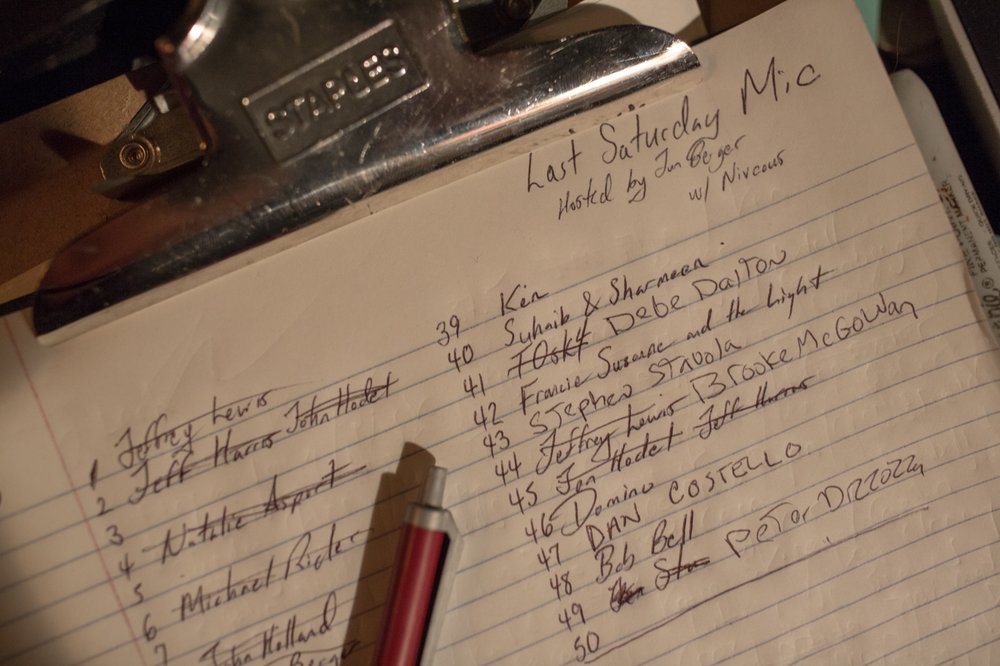 STAPLES
Last Saturday Mic
Hosted by Jon Berger
w/ Niveous
1 Jeffrey Lewis
2 Jeff Harris John Hodet
3
4 Natalie Asport
5
6 Michael Rider
7 John Holland
Berger
39 Ken
40 Suhaib & Sharmeen
41 Debe Dalton
42 Francie Susanne and the Light
43 STEPHEN STAVOLA
44 Jeffrey Lewis Brooke McGowan
45 Jen Hodet Jeff Harris
46 Domino
47 DAN COSTELLO
48 Bob Bell
49 Stu PETOR DIZOZZA
50
PERMANENT MARKER